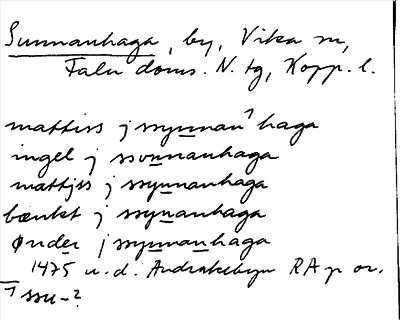 Sunnanhaga, by, Vika sn,
Falu doms. N. tg, Kopp. l.
mattiss j ssynnan⁷ haga
ingel j ssonnanhaga
mattjss j ssynnanhaga
bænkt j ssynanhaga
ønder j ssynnanhaga
1475 u. d. Andrakebyn RA p or.
⁷ ssu-?